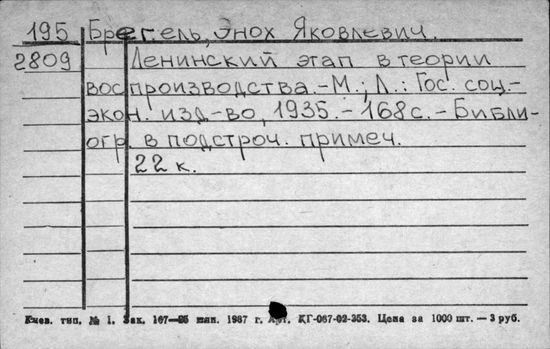 195 Брегель, Энох Яковлевич.
2809 Ленинский этап в теории
воспроизводства. - М.; Л.: Гос. соц.-
экон. изд-во, 1935. - 168 с. - Библи-
огр. в подстроч. примеч.
22 к.
Киев. тип. № 1. Зак. 167—25 млн. 1987 г. Арт. КГ-067-02-353. Цена за 1000 шт. — 3 руб.